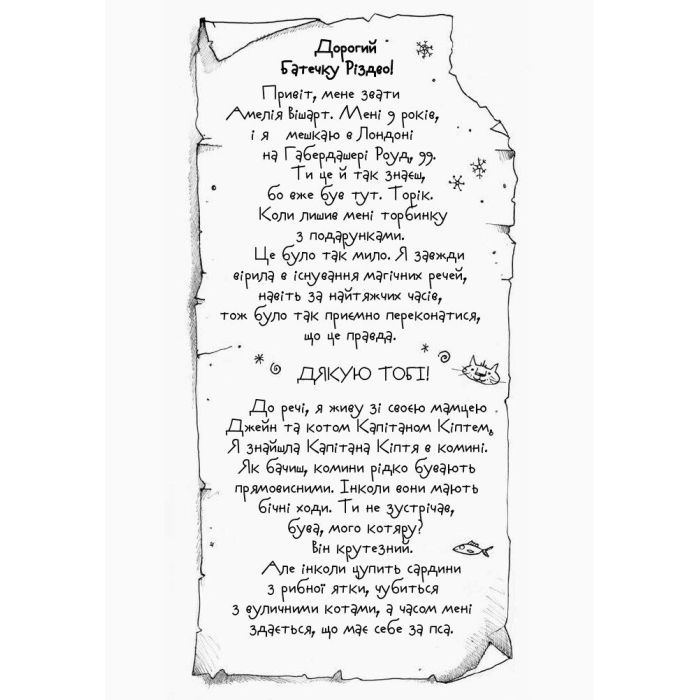 Дорогий
Батечку Різдво!
Привіт, мене звати
Амелія Вішарт. Мені 9 років,
і я мешкаю в Лондоні
на Габердашері Роуд, 99.
Ти це й так знаєш,
бо вже був тут. Торік.
Коли лишив мені торбинку
з подарунками.
Це було так мило. Я завжди
вірила в існування магічних речей,
навіть за найтяжчих часів,
тож було так приємно переконатися,
що це правда.
ДЯКУЮ ТОБІ!
До речі, я живу зі своєю мамцею
Джейн та котом Капітаном Кіптем,
Я знайшла Капітана Кіптя в комині.
Як бачиш, комини рідко бувають
прямовисними. Інколи вони мають
бічні ходи. Ти не зустрічав,
бува, мого котяру?
Він крутезний.
Але інколи цупить сардини
з рибної ятки, чубиться
з вуличними котами, а часом мені
здається, що має себе за пса.